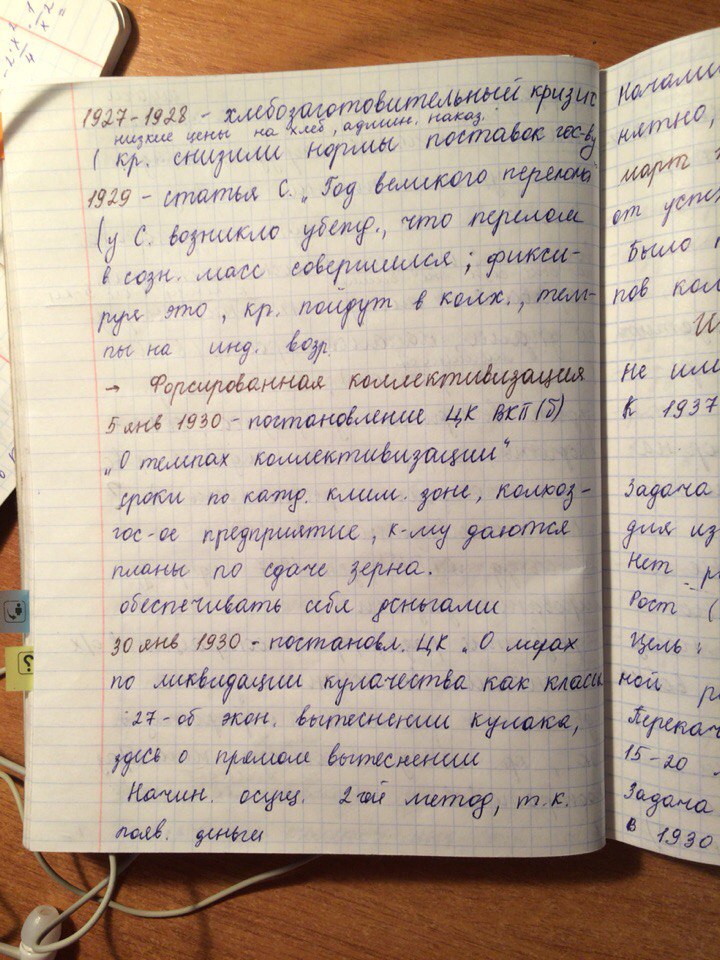 1927-1928 - хлебозаготовительный кризис
низкие цены на хлеб, админ. наказ.
( кр. снизили нормы поставок гос-ву
1929 - статья С. „Год великого перелома"
(у С. возникло убежд., что перелом
в созн. масс совершился; фикси-
руя это, кр. пойдут в колх., тем-
пы на инд. возр.
→ Форсированная коллективизация
5 янв 1930 - постановление ЦК ВКП(б)
„О темпах коллективизации"
сроки по кажд. клим. зоне, колхоз-
гос-ое предприятие, к-му даются
планы по сдаче зерна.
обеспечивать себя деньгами
30 янв 1930 - постановл. ЦК „О мерах
по ликвидации кулачества как класса
27-об экон. вытеснении кулака,
здесь о прямом вытеснении
Начин. осущ. 2-ой метод, т.к.
появ. деньги
Начали
нятно,
март
от успе
Было
пов кол
Не име
К 1937
Задача
для из
Нет
Рост (
Цель:
ной
Перекач
15-20
Задача
в 1930